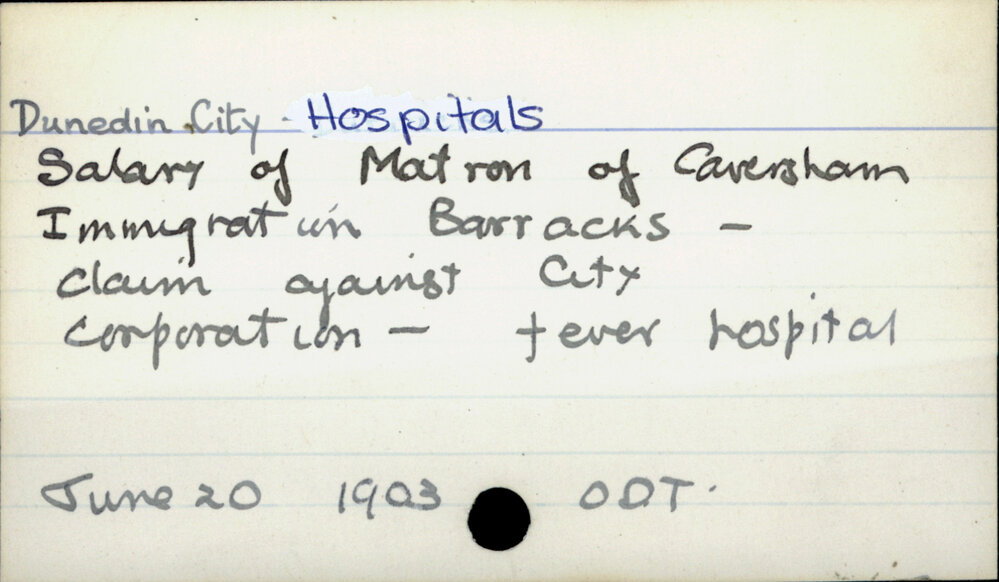 Dunedin City - Hospitals
Salary of Matron of Caversham
Immigration Barracks -
Claim against City
Corporation - fever hospital
June 20 1903 ODT.